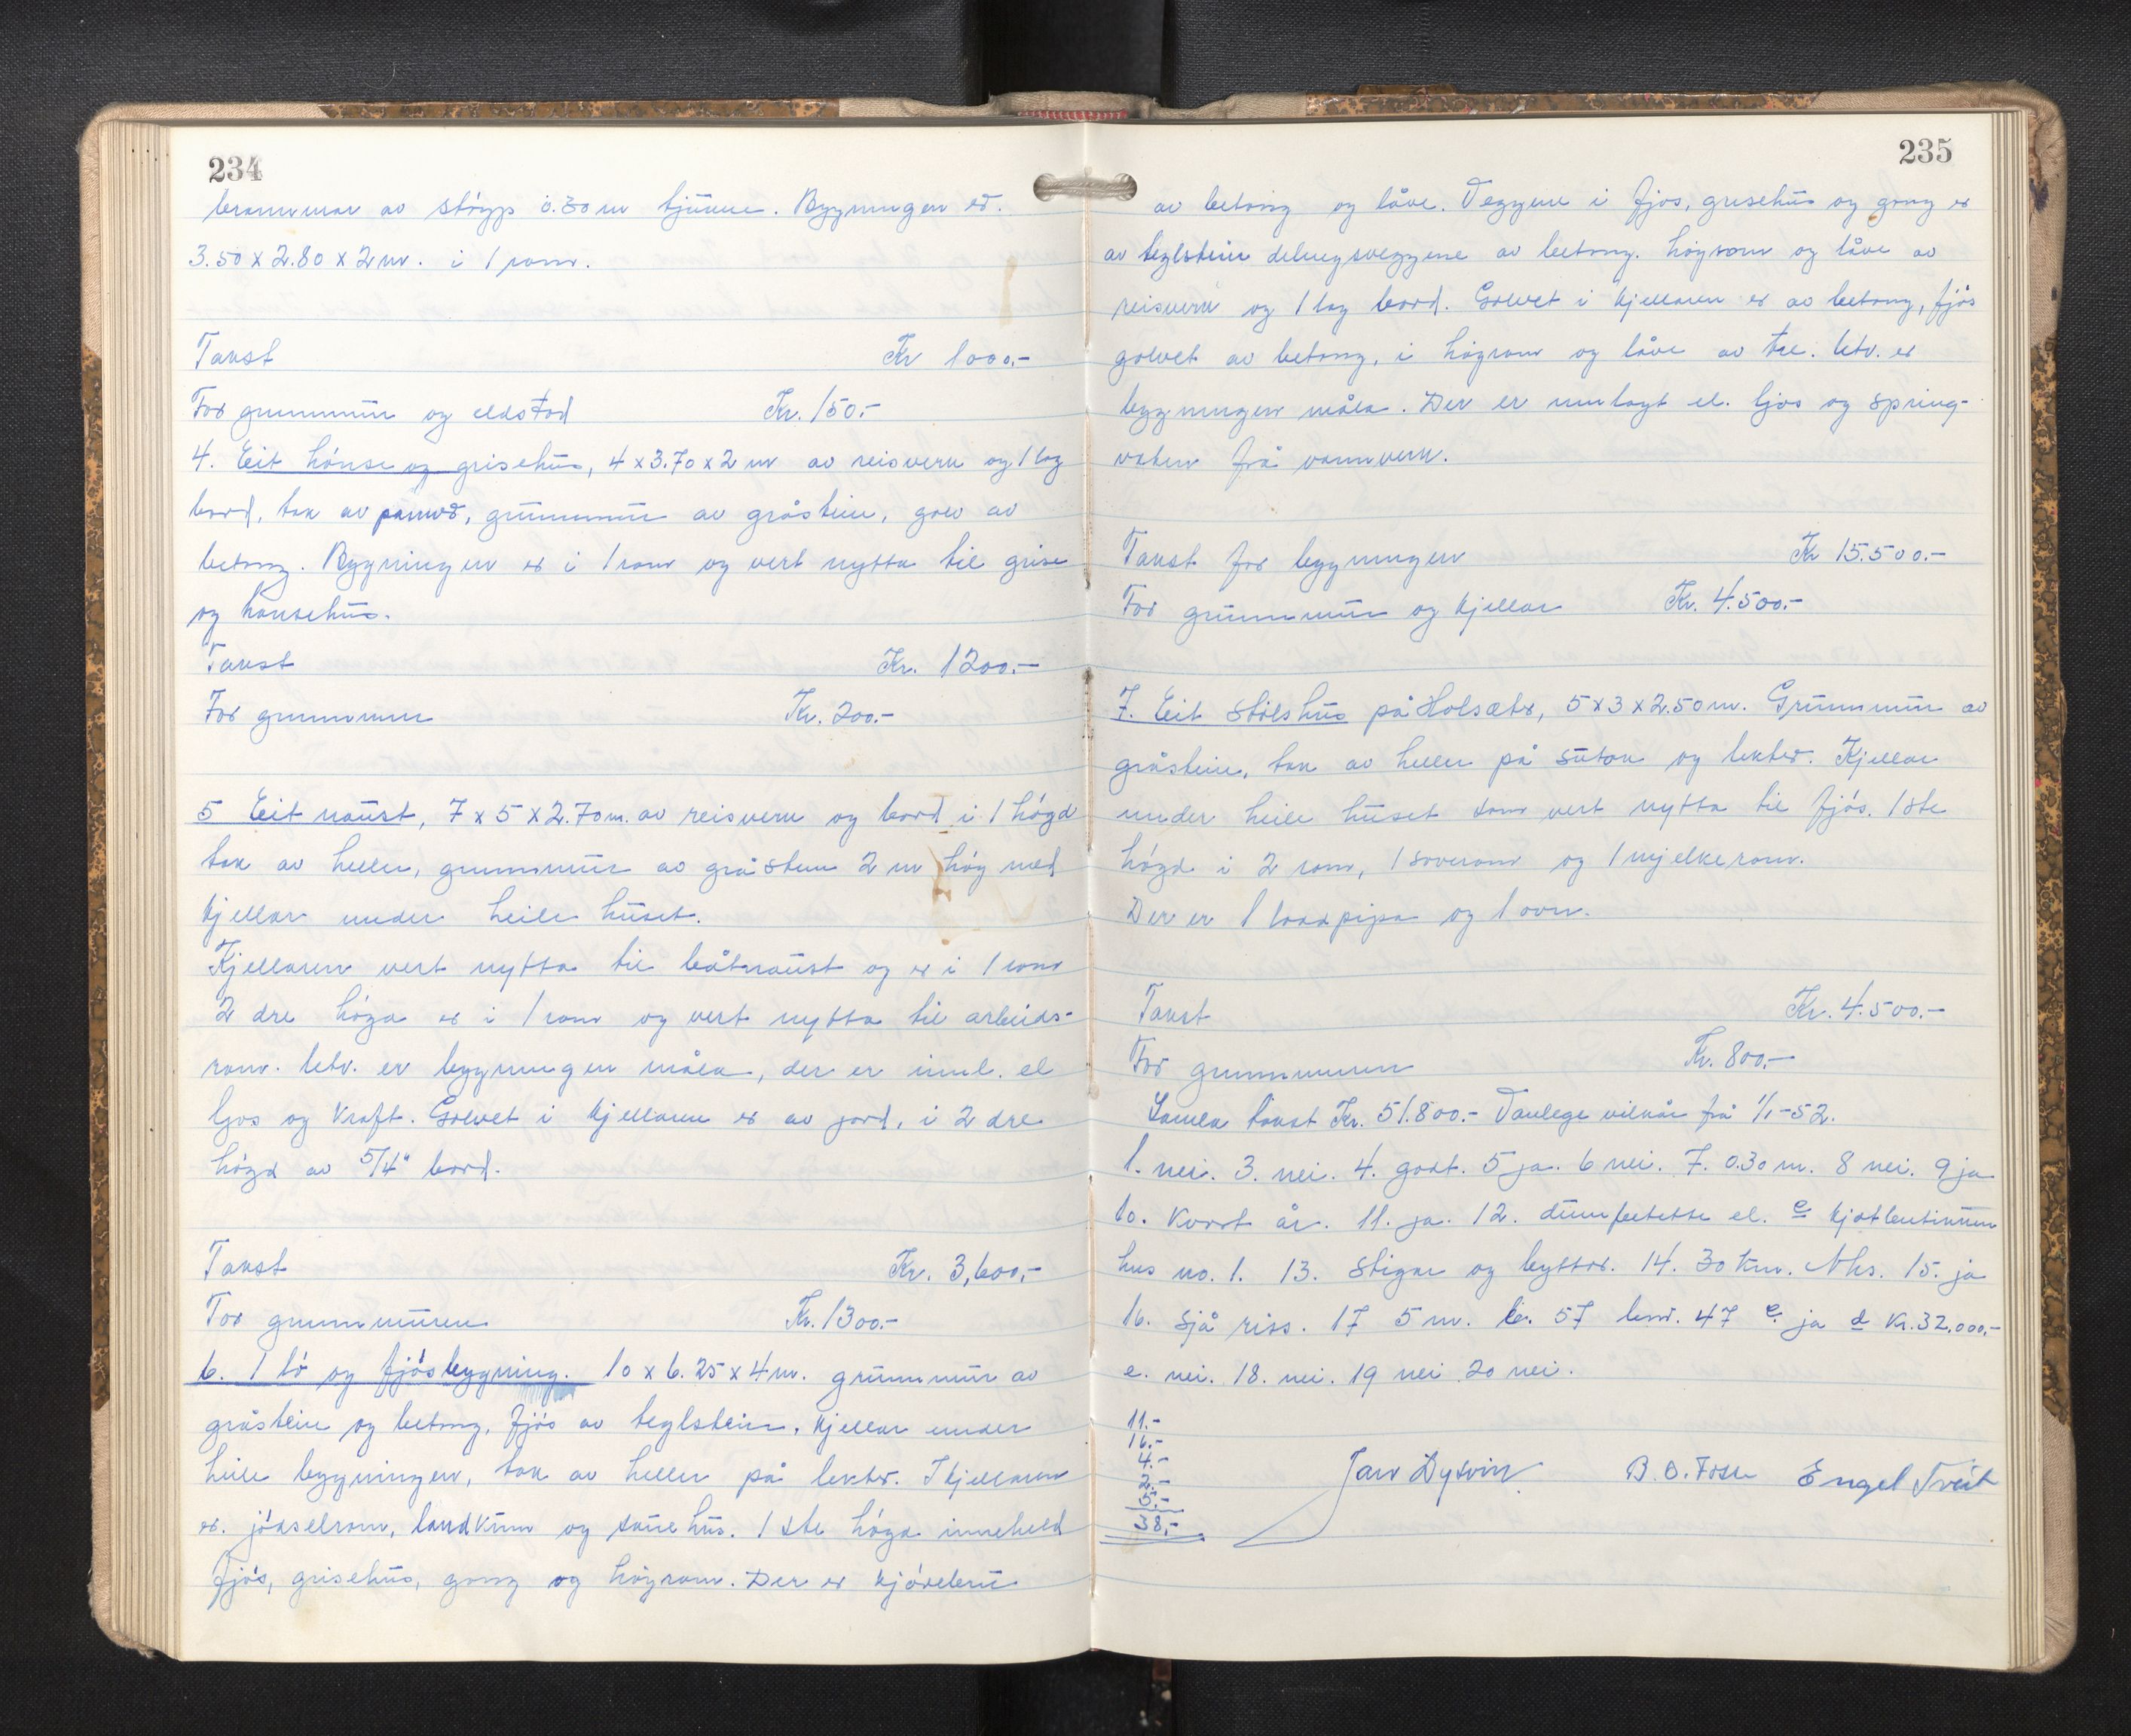 234
brannmur av støyp 0.30 m tjukke. Bygningen er.
3.50 x 2.80 x 2 m. i 1 rom.
Takst Kr 1000.-
For grunnmur og eldstad Kr. 150.-
4. Eit hønse og grisehus, 4 x 3.70 x 2 m av reisverk og 1 lag
bord, tak av panner, grunnmur av gråstein, golv av
betong. Bygningen er i 1 rom og vert nytta til grise
og hønsehus.
Takst Kr. 1200.-
For grunnmur Kr. 200.-
5 Eit naust, 7 x 5 x 2.70 m. av reisverk og bord i 1 høgd
tak av heller, grunnmur av gråstein 2 m høg med
kjellar under heile huset.
Kjellaren vert nytta til båtnaust og er i 1 rom
2 dre høgd er i 1 rom og vert nytta til arbeids-
rom. Utv. er bygningen måla, der er innl. el
ljos og kraft. Golvet i kjellaren er av jord, i 2 dre
høgd av 5/4" bord.
Takst Kr. 3,600,-
For grunnmuren Kr. 1300.-
6. 1 lø og fjøsbygning. 10 x 6.25 x 4 m. grunnmur av
gråstein og betong, fjøs av teglstein. Kjellar under
heile bygningen, tak av heller på lekter. I kjellaren
er. jødselrom, landkum og sauehus. 1 ste høgd inneheld
fjøs, grisehus, gong og høyrom. Der er kjørebru
235
av betong og låve. Veggene i fjøs, grisehus og gong er
av teglstein delingsveggene av betong. høyrom og låve av
reisverk og 1 lag bord. Golvet i kjellaren er av betong, fjøs
golvet av betong, i høyrom og låve av tre. Utv. er
bygningen måla. Der er innlagt el. ljos og spring-
vatn frå vannverk.
Takst for bygningen Kr 15.500.-
For grunnmur og kjellar Kr. 4.500.-
7. Eit Stølshus på Holsætr, 5 x 3 x 2.50 m. Grunnmur av
gråstein, tak av heller på sutak og lekter. Kjellar
under heile huset som vert nytta til fjøs. 1 ste
høgd i 2 rom, 1 soverom og 1 mjelkerom.
Der er 1 pipa og 1 ovn.
Takst Kr. 4.500.-
For grunnmuren Kr. 800.-
Samla takst Kr. 51.800.- Vanlege vilkår frå 1/1-52.
1. nei. 3. nei. 4. godt. 5 ja. 6 nei. 7. 0.30 m. 8 nei. 9 ja
10. Kvart år. 11. ja. 12. el. e
hus no. 1. 13. Stigar og byttor. 14. 30 km. Nhs. 15. ja
16. Sjå riss. 17 5 m. b. 57 bnr. 47 c. ja d Kr. 32,000,-
e. nei. 18. nei. 19 nei 20 nei.
11.-
16.-
4.-
2.-
5.-
38,-
B. O. Foss Engel Tveit